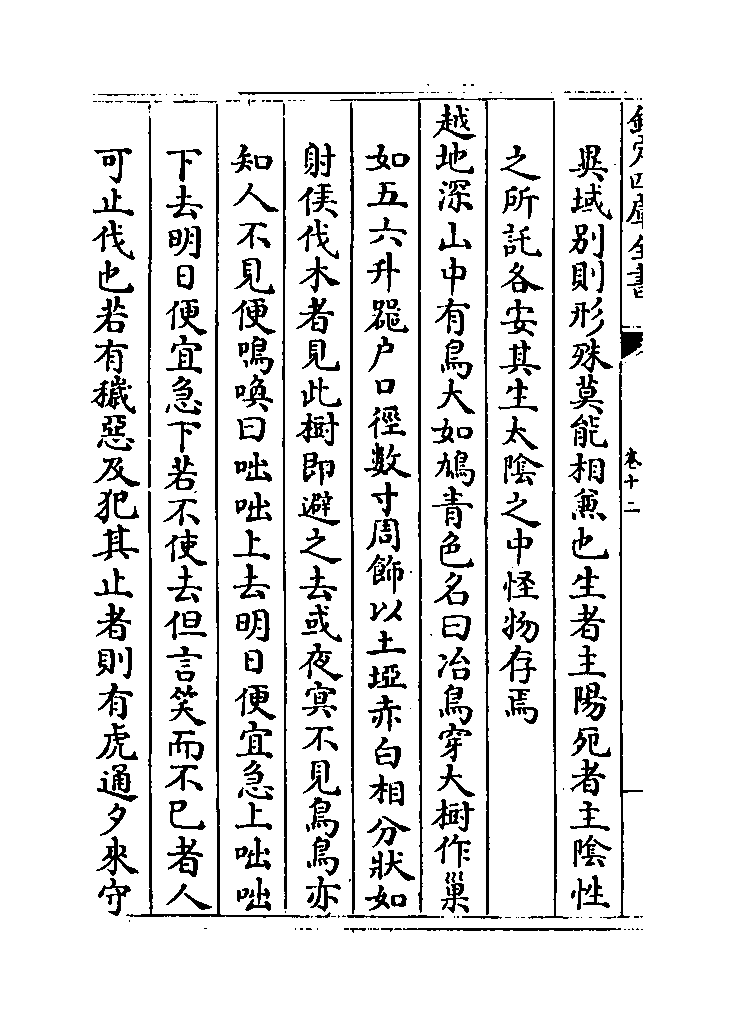 欽定四庫全書
卷十二
異域别則形殊莫能相兼也生者主陽死者主陰性
之所託各安其生太陰之中怪物存焉
越地深山中有鳥大如鳩青色名曰冶鳥穿大樹作巢
如五六升器户口徑數寸周飾以土堊赤白相分狀如
射侯伐木者見此樹即避之去或夜㝠不見鳥鳥亦
知人不見便鳴喚曰咄咄上去明日便宜急上咄咄
下去明日便宜急下若不使去但言笑而不已者人
可止伐也若有穢惡及犯其止者則有虎通夕來守